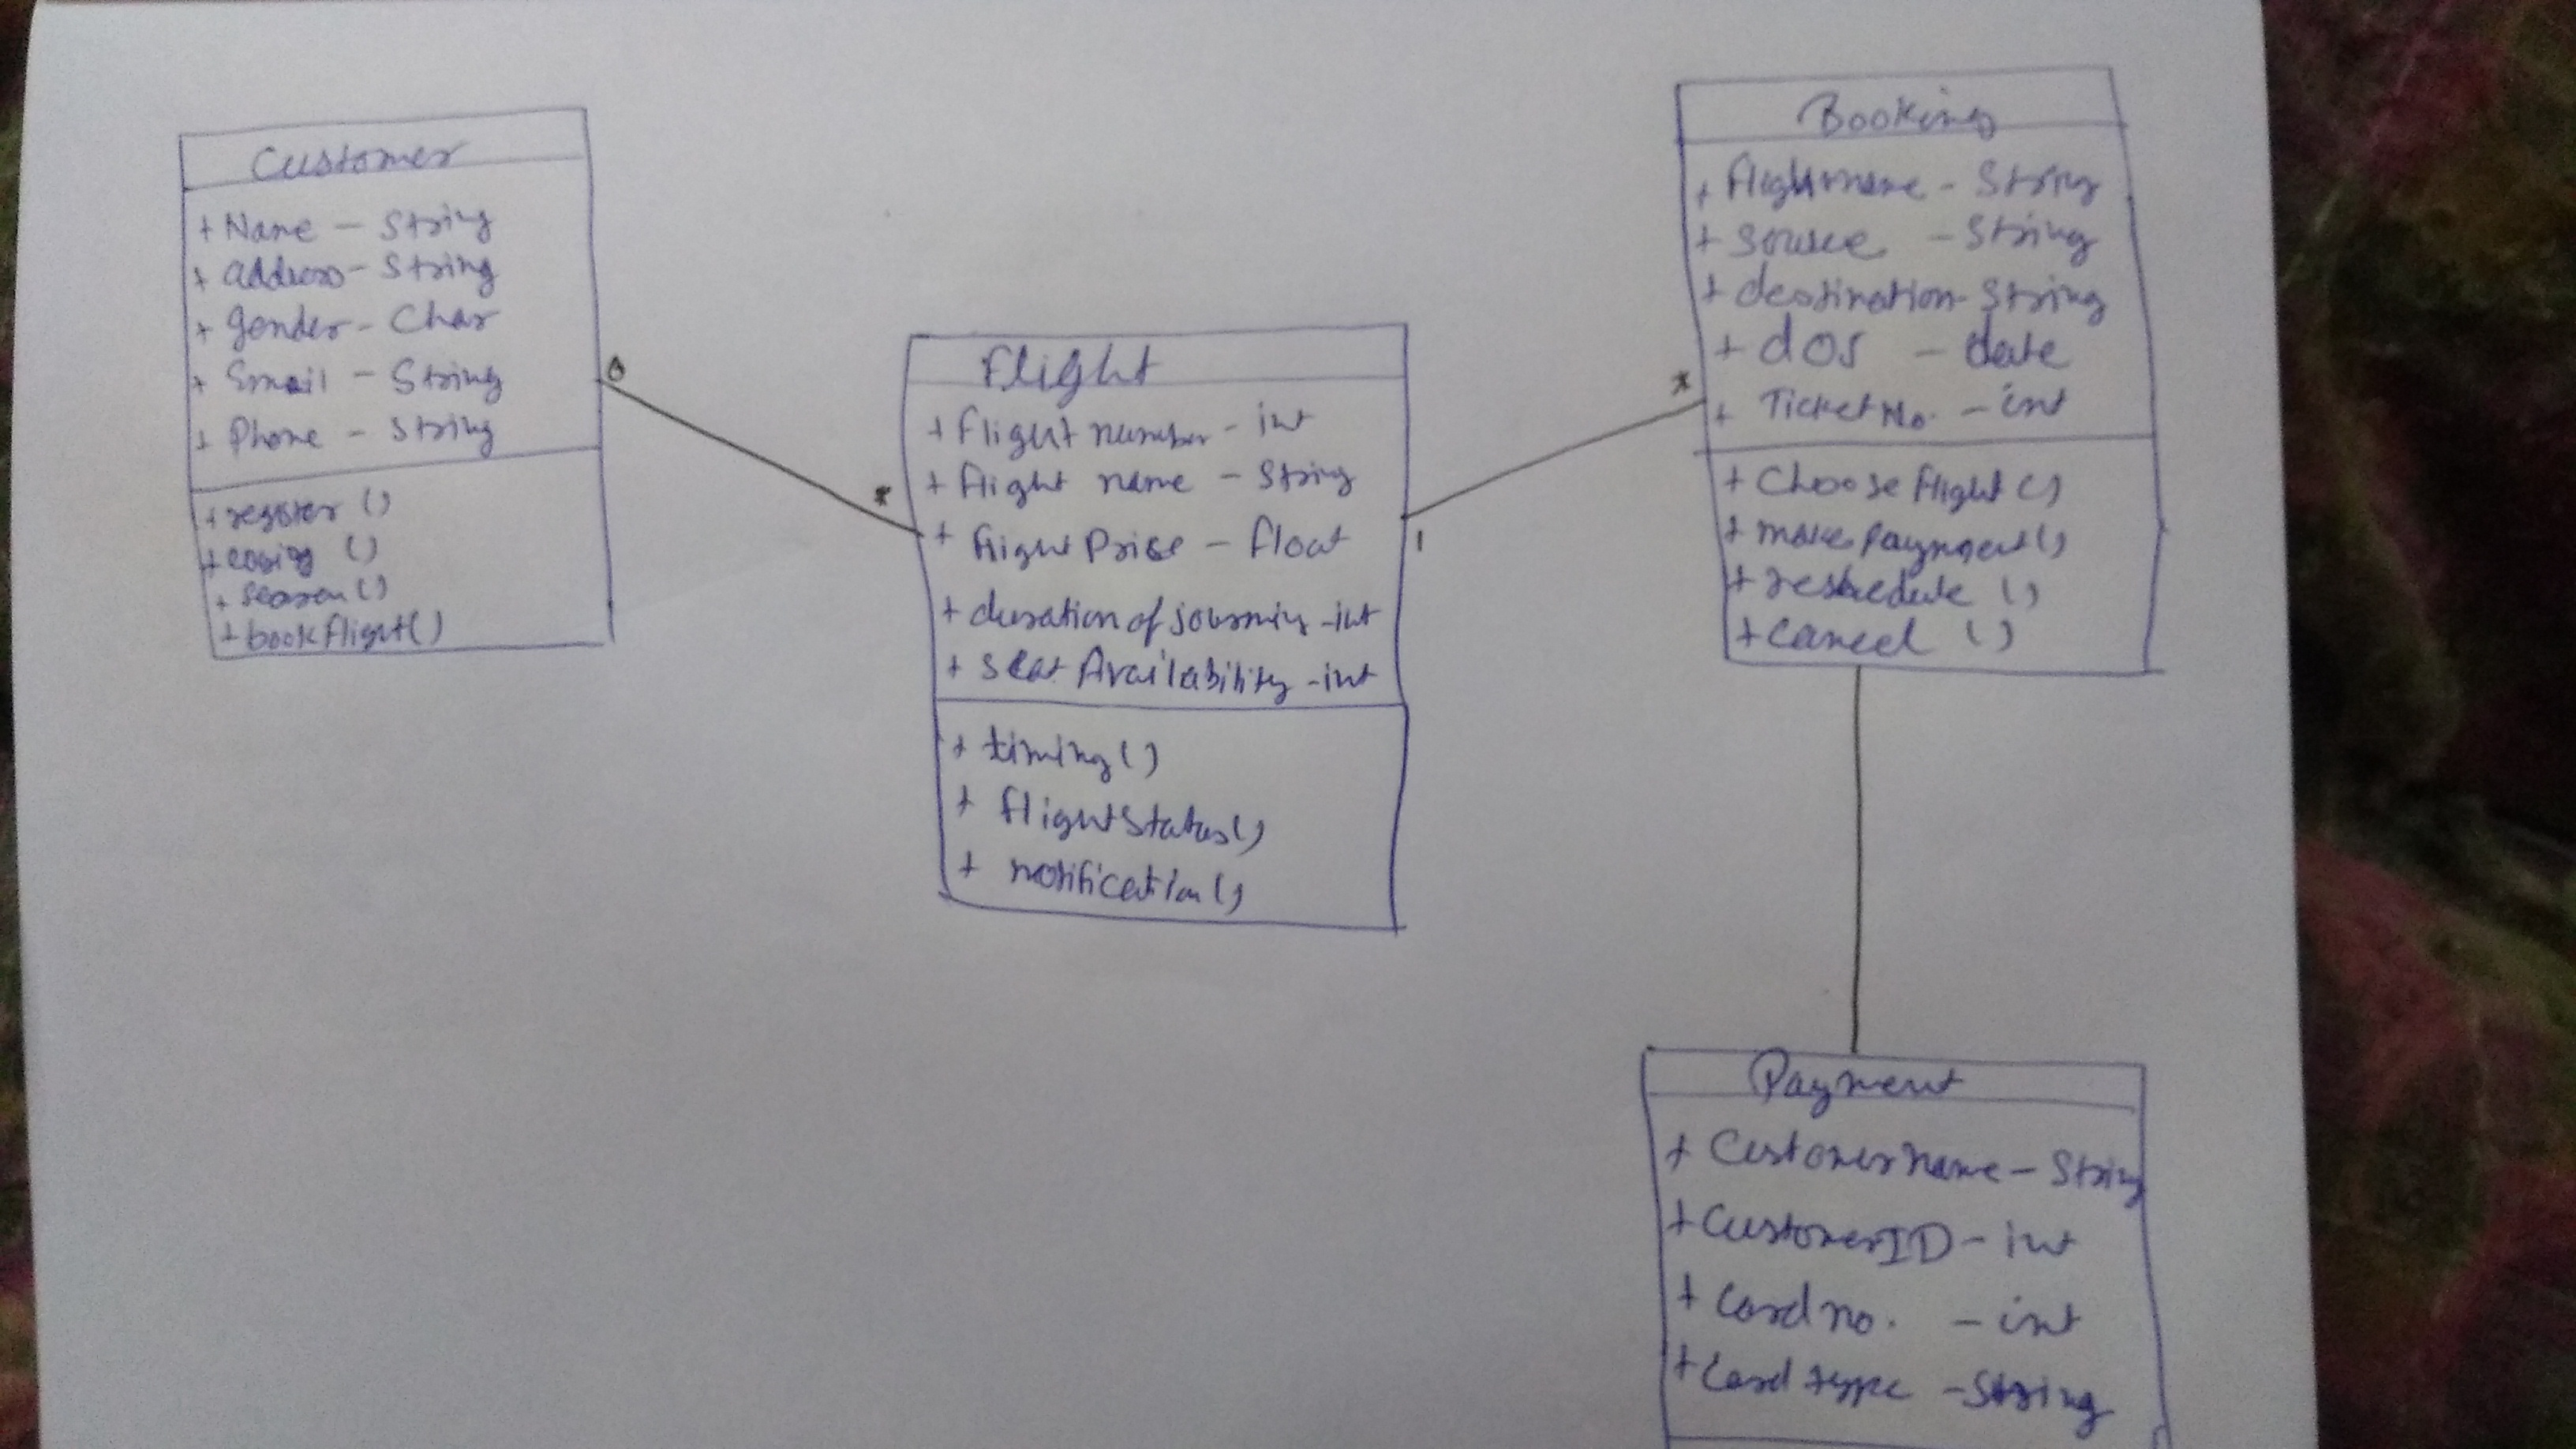 Customer
+ Name - String
+ address - String
+ gender - Char
+ Email - String
+ Phone - String
+ register ()
+
+ search ()
+ bookflight()
0
*
Flight
+ flight number - int
+ flight name - String
+ flight Price - float
+ duration of journiy - int
+ seat Availability - int
+ timing()
+ flightstatus()
+ notification()
1
*
Booking
+ flightname - String
+ source - String
+ destination - String
+ dos - date
+ Ticket No. - int
+ Choose flight ()
+ make payment()
+ reshedule ()
+ cancel ()
Payment
+ Customername - String
+ CustomerID - int
+ Card no. - int
+ Card type - String